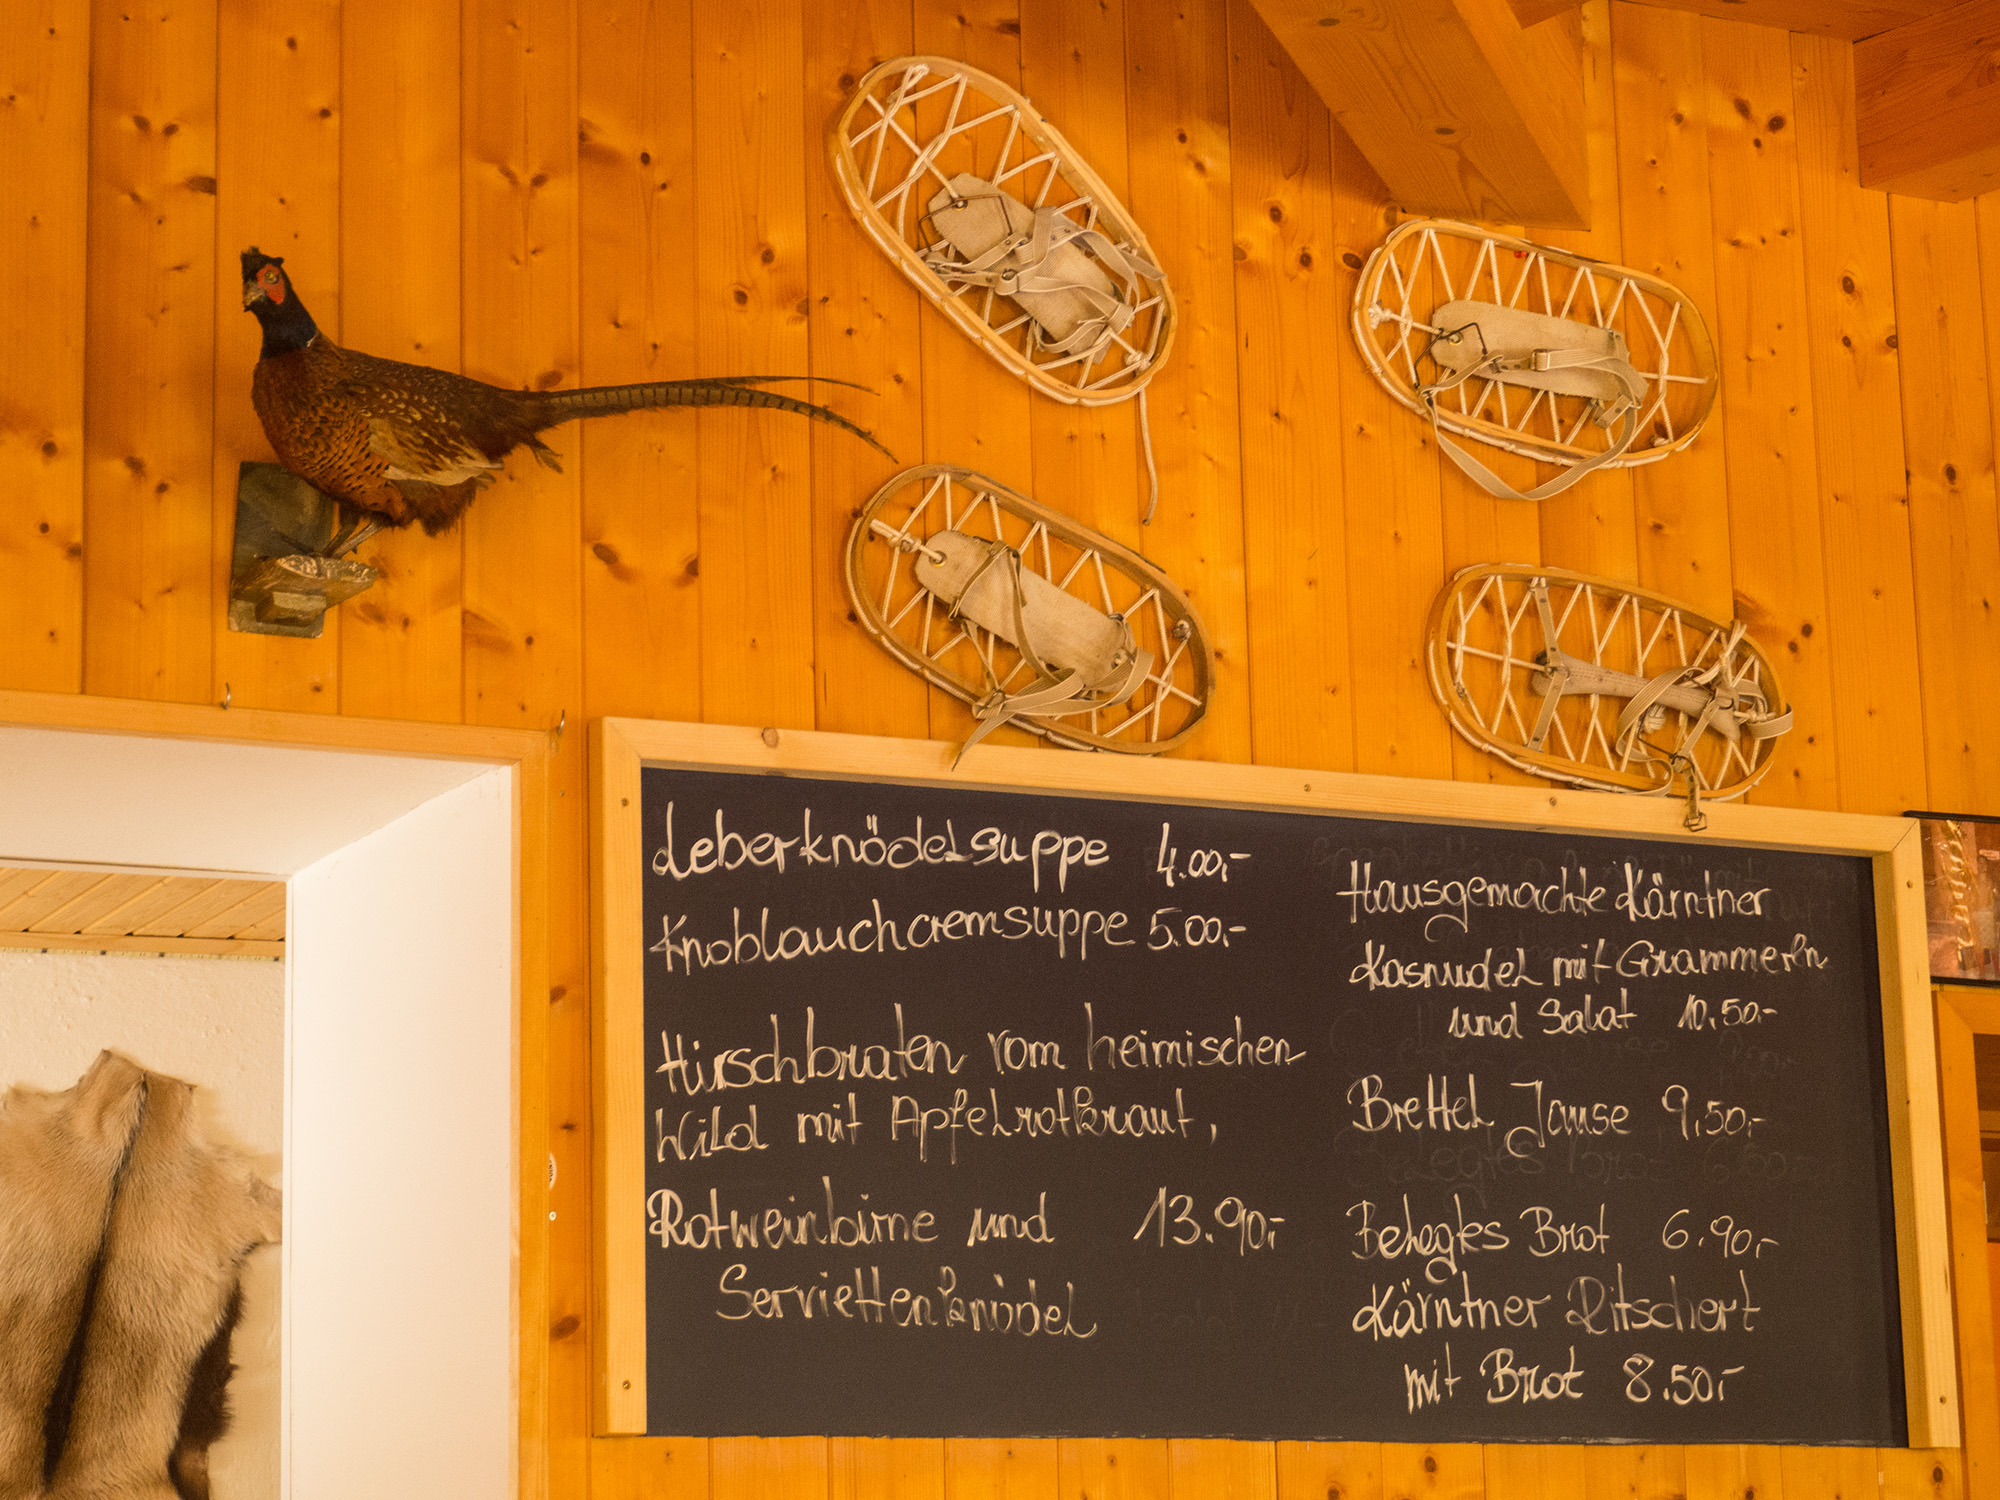 Leberknödelsuppe 4.00,-
Knoblauchcremsuppe 5.00,-
Hirschbraten vom heimischen
Wild mit Apfelrotkraut,
Rotweinbirne und 13.90,-
Serviettenknödel
Hausgemachte Kärntner
Kasnudel mit Grammerln
und Salat 10.50,-
Brettel Jause 9,50,-
Belegtes Brot 6.90,-
Kärntner Ritschert
mit Brot 8.50,-